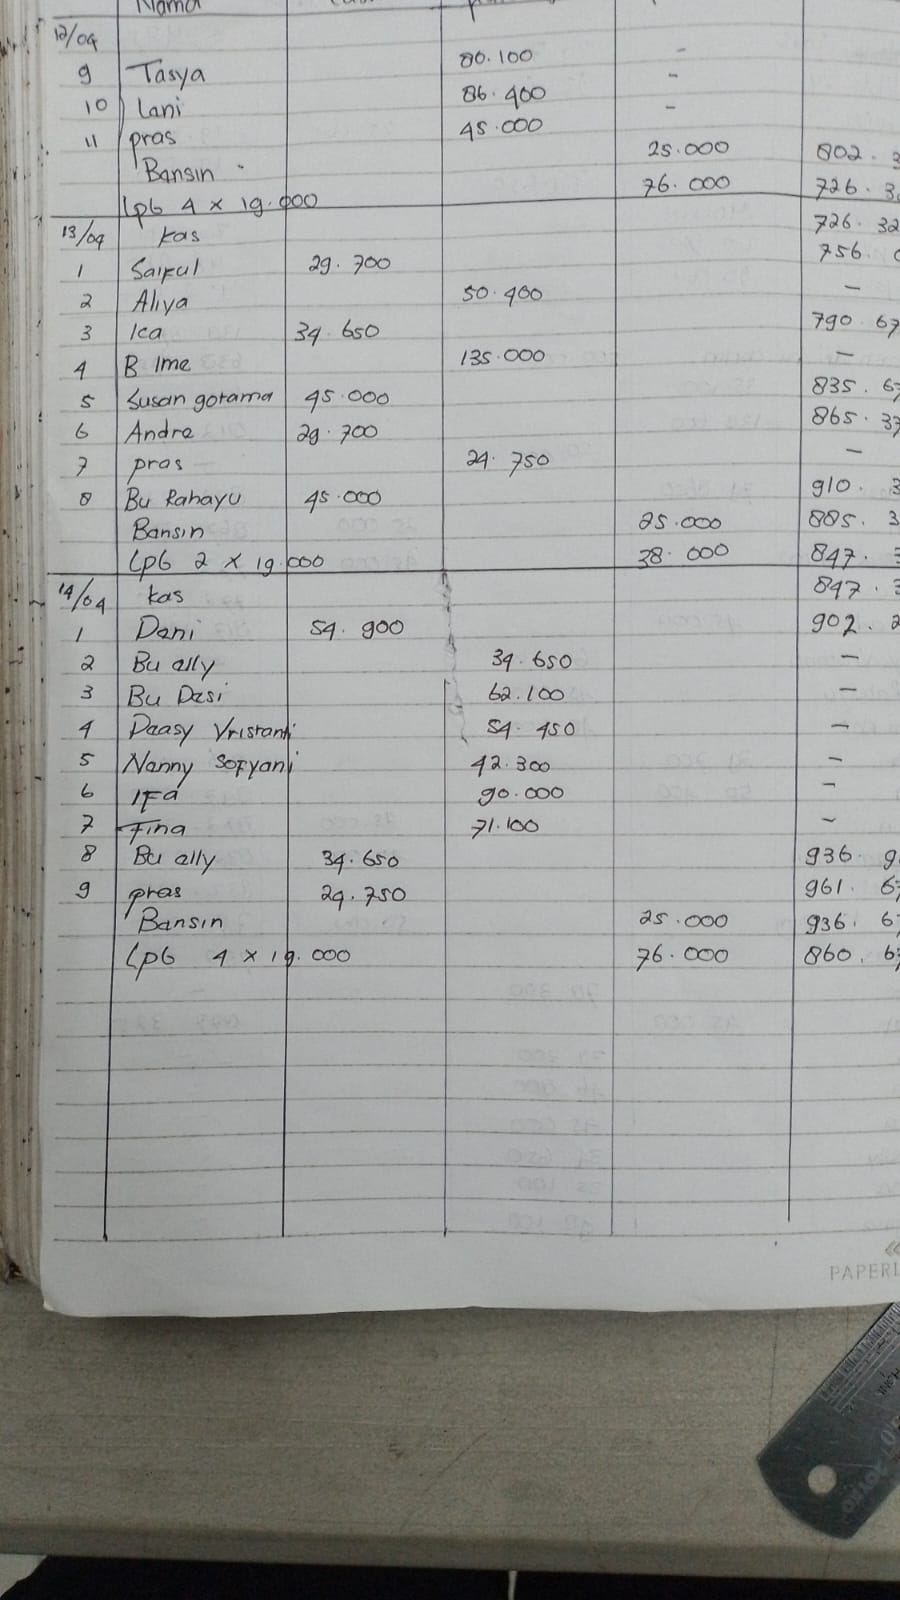 Nama
12/04
9 Tasya 80.100 -
10 Lani 86.400 -
11 pras 45.000 -
Bansin 25.000 802.
Lpb 4 x 19.000 76.000 726.
13/04 kas 726. 32
1 Saiful 29.700 756.
2 Aliya 50.400 -
3 Ica 34.650 790. 67
4 B Ime 135.000 -
5 Susan gotama 45.000 835. 67
6 Andre 29.700 865. 37
7 pras 24.750 -
8 Bu Rahayu 45.000 910. 3
Bansin 25.000 885. 3
Lpb 2 x 19.000 38.000 847. 3
14/04 kas 847. 3
1 Dani 54.900 902. 2
2 Bu ally 34.650 -
3 Bu Desi 62.100 -
4 Daasy Vristanti 54.450 -
5 Nanny Sofyani 42.300 -
6 Ifa 90.000 -
7 Fina 71.100 -
8 Bu ally 34.650 936. 9
9 pras 24.750 961. 67
Bansin 25.000 936. 67
Lpb 4 x 19.000 76.000 860. 67
PAPERL